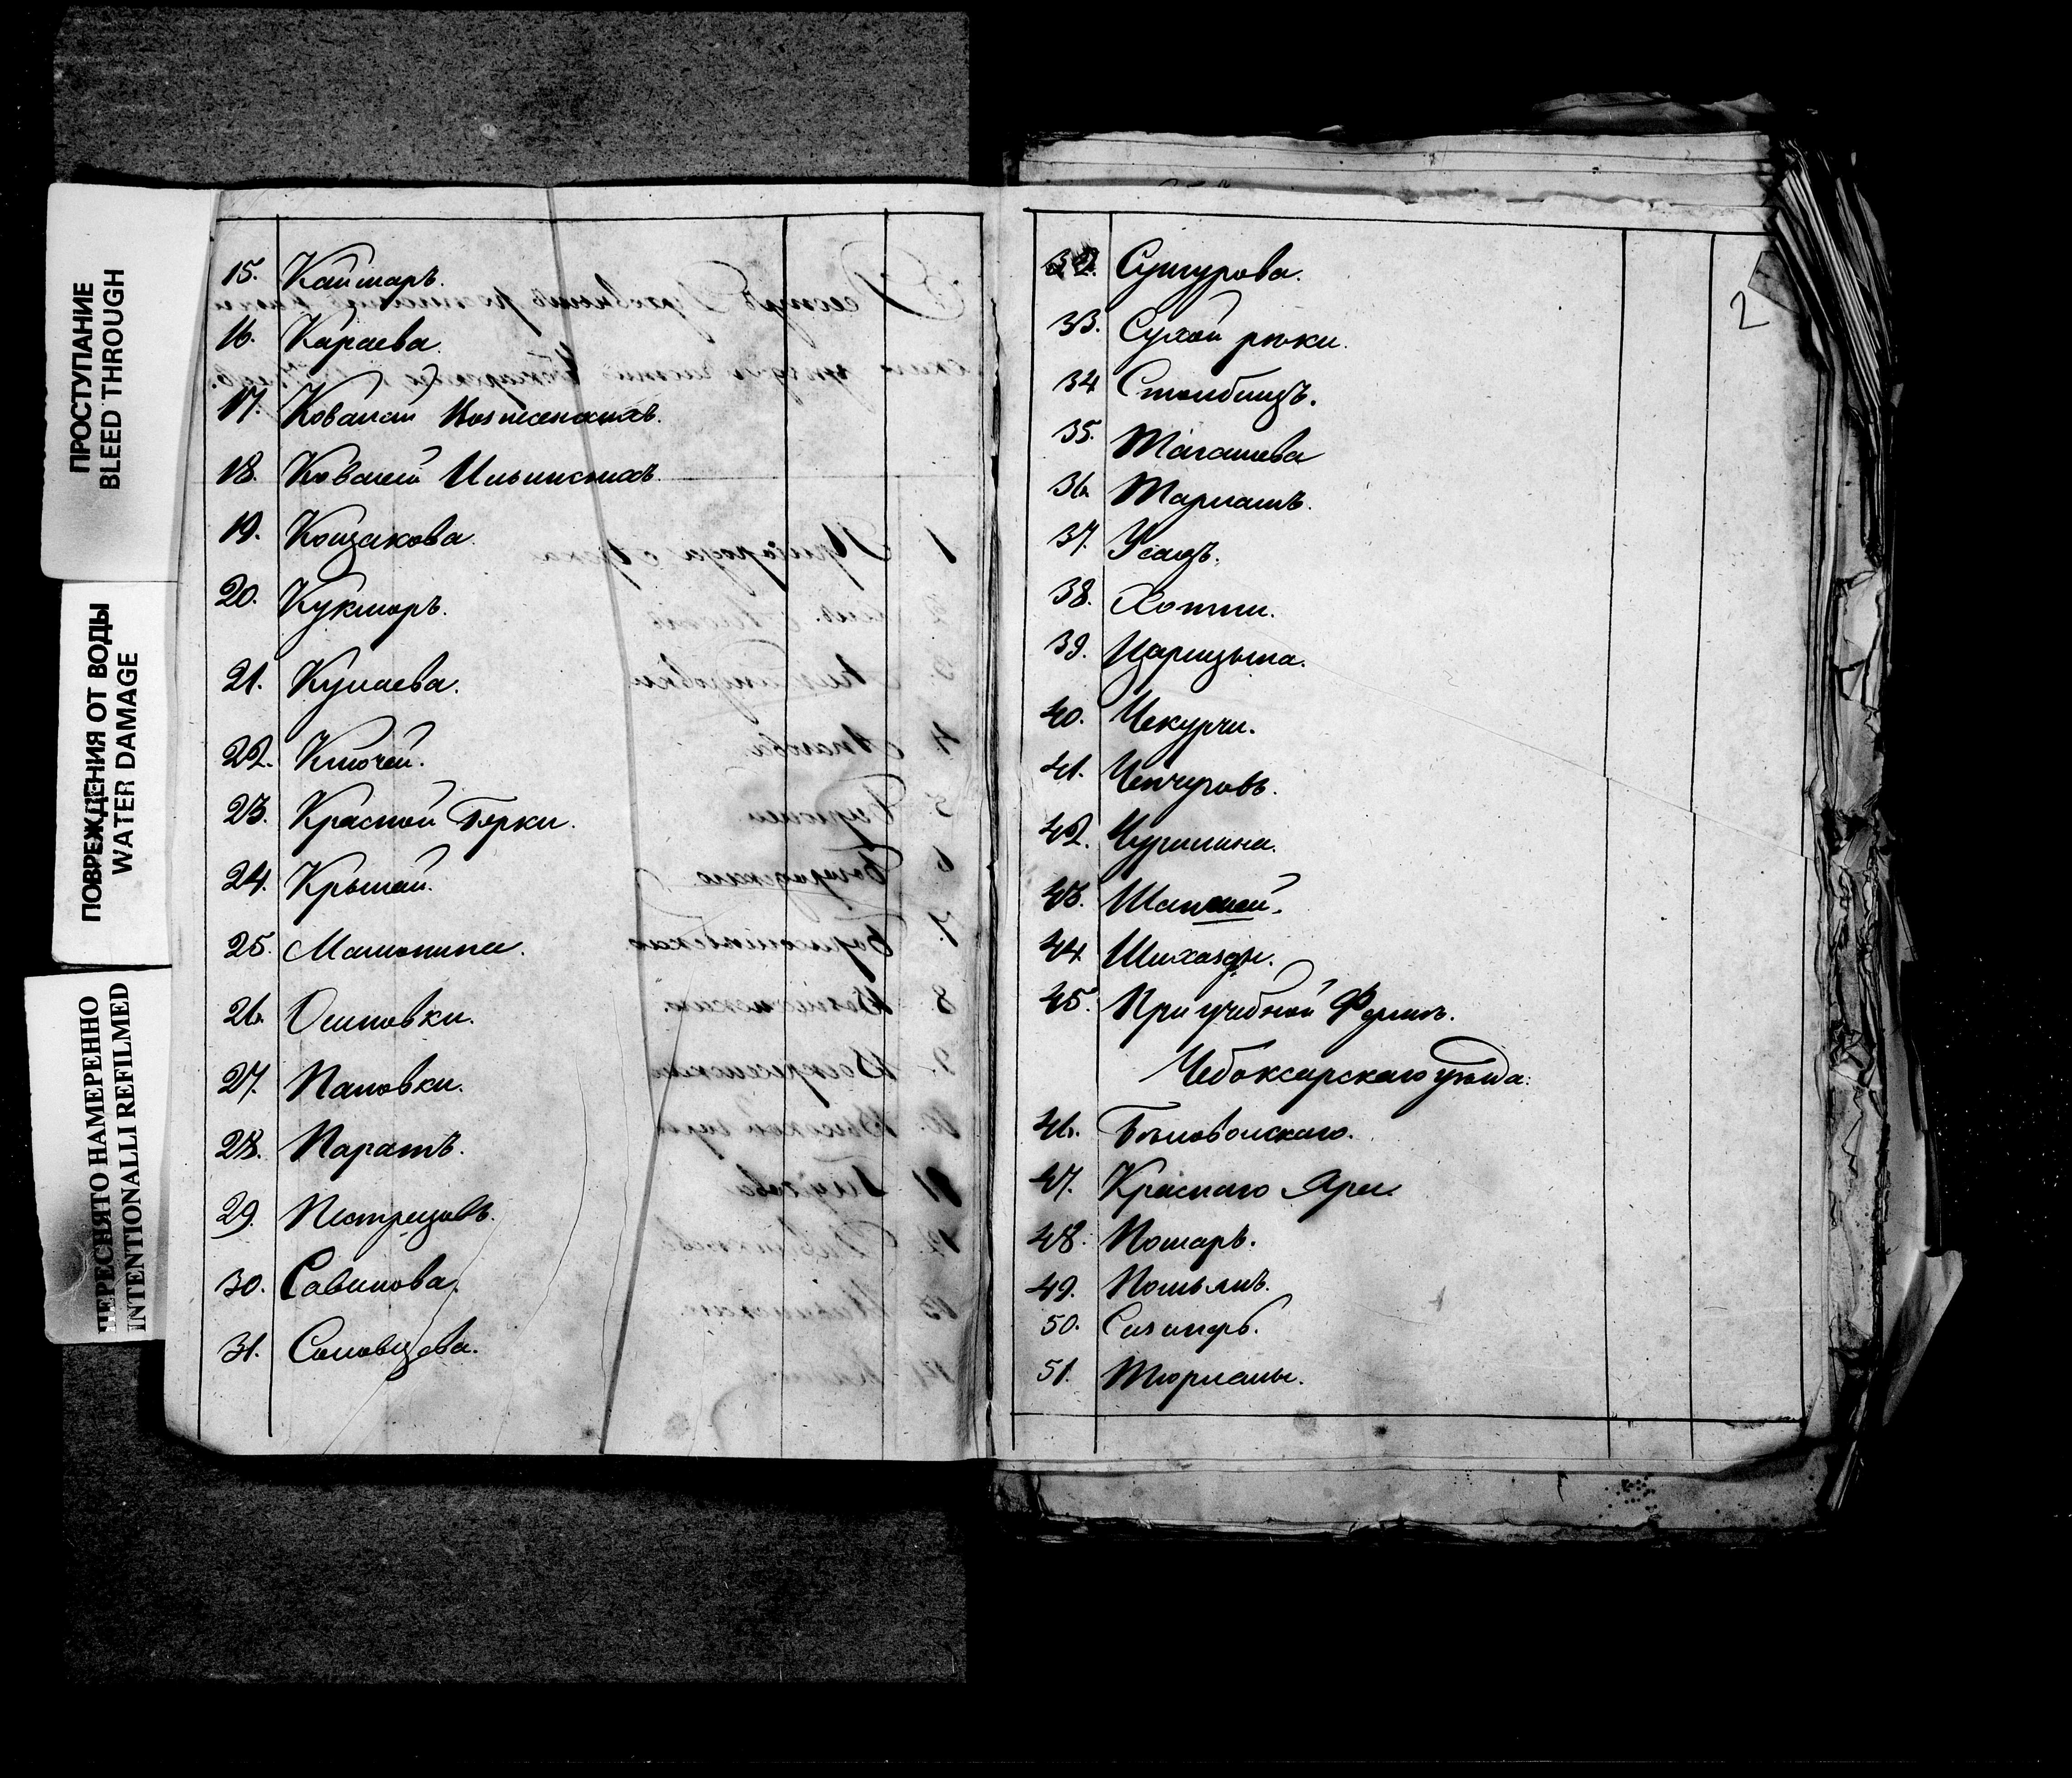 ПРОСТУПАНИЕ
BLEED THROUGH
ПОВРЕЖДЕНИЯ ОТ ВОДЫ
WATER DAMAGE
ПЕРЕСНЯТО НАМЕРЕННО
INTENTIONALLI REFILMED
15. Каймаръ.
16. Караева.
17. Ковалей Вознесенскихъ.
18. Ковалей Ильинскихъ.
19. Кощакова.
20. Кукморъ.
21. Кулаева.
22. Ключей.
23. Красной Горки.
24. Крылай.
25. Мамонина.
26. Осиновки.
27. Пановки.
28. Паратъ.
29. Пестрецовъ.
30. Савинова.
31. Соловцова.
2
32. Сумурова.
33. Сухой рѣки.
34. Столбищъ.
35. Тагашева
36. Тарлашъ.
37. Усадъ.
38. Хотни.
39. Царицына.
40. Чекурчи.
41. Чепчуговъ.
42. Чурилина.
43. Шапшей.
44. Шихазды.
45. При учебной Фермѣ.
Чебоксарскаго уѣзда:
46. Бѣловолжскаго.
47. Краснаго Яра.
48. Помаръ.
49. Помъялъ.
50. Сизандръ.
51. Тюрлемы.